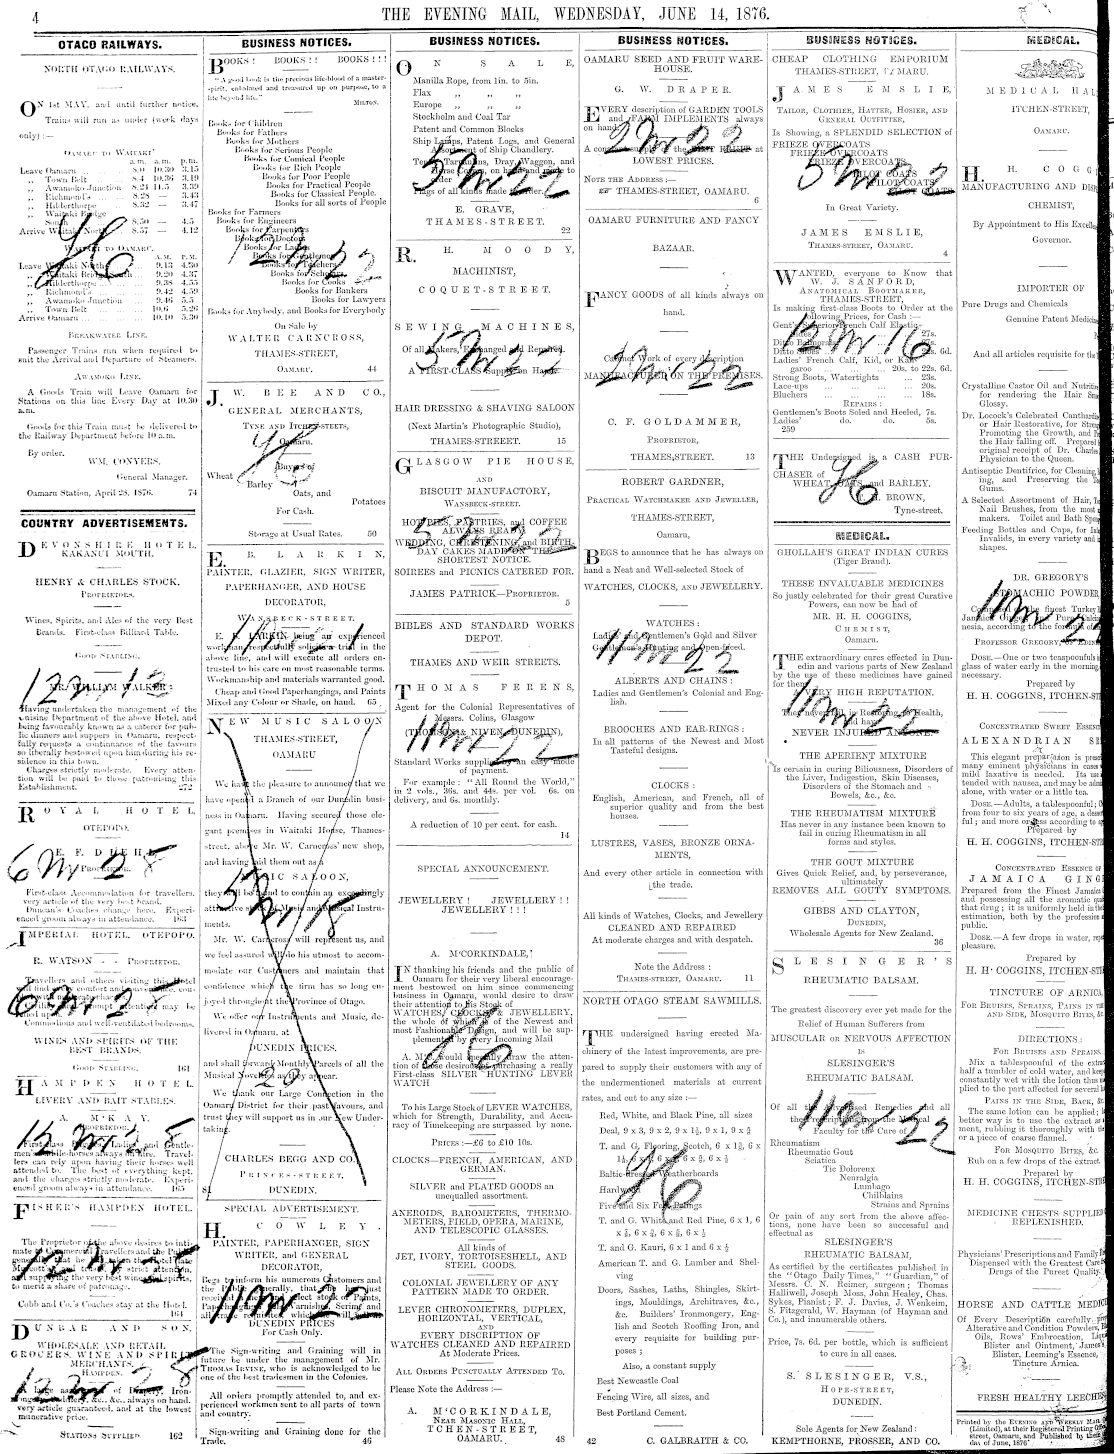 4
THE EVENING MAIL, WEDNESDAY, JUNE 14, 1876.
OTAGO RAILWAYS.
NORTH OTAGO RAILWAYS.
ON 1st MAY, and until further notice,
Trains will run as under (week days
only) :—
OAMARU TO WAITAKI
a.m. a.m. p.m.
Leave Oamaru 8.0 10.30 3.15
„ Town Belt 8.4 10.36 3.19
„ Awamoko Junction 8.24 11.5 3.39
„ Richmond's 8.28 — 3.43
„ Hilderthorpe 8.32 — 3.47
„ Waitaki Bridge
8.50 — 4.5
Arrive Waitaki North 8.57 — 4.12
WAITAKI TO OAMARU.
A.M. P.M.
Leave Waitaki North 9.13 4.30
„ Waitaki Bridge South 9.20 4.37
„ Hilderthorpe 9.38 4.55
„ Richmond's 9.42 4.59
„ Awamoko Junction 9.46 5.5
„ Town Belt 10.6 5.26
Arrive Oamaru 10.10 5.30
BREAKWATER LINE.
Passenger Trains run when required to
suit the Arrival and Departure of Steamers.
AWAMOKO LINE.
A Goods Train will Leave Oamaru for
Stations on this line Every Day at 10.30
a.m.
Goods for this Train must be delivered to
the Railway Department before 10 a.m.
By order.
WM. CONYERS,
General Manager.
Oamaru Station, April 28, 1876. 74
COUNTRY ADVERTISEMENTS.
DEVONSHIRE HOTEL,
KAKANUI MOUTH.
HENRY & CHARLES STOCK,
PROPRIETORS.
Wines, Spirits, and Ales of the very Best
Brands. First-class Billiard Table.
GOOD STABLING.
MR. WILLIAM WALKER
Having undertaken the management of the
Cuisine Department of the above Hotel, and
being favourably known as a caterer for pub-
lic dinners and suppers in Oamaru, respect-
fully requests a continuance of the favours
so liberally bestowed upon him during his re-
sidence in this town.
Charges strictly moderate. Every atten-
tion will be paid to those patronising this
Establishment. 272
ROYAL HOTEL,
OTEPOPO.
First-class Accommodation for travellers.
very article of the very best brand.
Duncan's Coaches change here. Experi-
enced groom always in attendance. 163
IMPERIAL HOTEL, OTEPOPO.
R. WATSON - - PROPRIETOR.
Travellers and others visiting this Hotel
Commodious and well-ventilated bedrooms.
WINES AND SPIRITS OF THE
BEST BRANDS.
GOOD STABLING. 161
HAMPDEN HOTEL.
LIVERY AND BAIT STABLES.
A. M'KAY,
PROPRIETOR.
First-class
lers can rely upon having their horses well
attended to. The best of everything kept,
and the charges strictly moderate. Experi-
enced groom always in attendance. 165
FISHER'S HAMPDEN HOTEL.
The Proprietor of the above desires to inti-
to merit a share of patronage.
Cobb and Co.'s Coaches stay at the Hotel.
164
DUNBAR AND SON,
WHOLESALE AND RETAIL
GROCERS, WINE AND SPIRIT
MERCHANTS,
HAMPDEN.
very article guaranteed, and at the lowest
munerative price.
STATIONS SUPPLIED. 162
BUSINESS NOTICES.
BOOKS ! BOOKS !! BOOKS !!!
"A good book is the precious life-blood of a master-
spirit, embalmed and treasured up on purpose, to a
life beyond life."
MILTON.
Books for Children
Books for Fathers
Books for Mothers
Books for Serious People
Books for Comical People
Books for Rich People
Books for Poor People
Books for Practical People
Books for Classical People.
Books for all sorts of People
Books for Farmers
Books for Engineers
Books for Carpenters
Books for Doctors
Books for Ladies
Books for Gentlemen
Books for Teachers
Books for Scholars
Books for Cooks
Books for Bankers
Books for Lawyers
Books for Anybody, and Books for Everybody
On Sale by
WALTER CARNCROSS,
THAMES-STREET,
OAMARU. 44
J. W. BEE AND CO.,
GENERAL MERCHANTS,
TYNE AND ITCHEN-STEETS,
Oamaru.
Buyers of
Wheat
Barley
Oats, and
Potatoes
For Cash.
Storage at Usual Rates. 50
E. B. LARKIN,
PAINTER, GLAZIER, SIGN WRITER,
PAPERHANGER, AND HOUSE
DECORATOR,
WANSBECK-STREET.
E. B. LARKIN being an experienced
workman, respectfully solicits a trial in the
above line, and will execute all orders en-
trusted to his care on most reasonable terms.
Workmanship and materials warranted good.
Cheap and Good Paperhangings, and Paints
Mixed any Colour or Shade, on hand. 65
NEW MUSIC SALOON
THAMES-STREET,
OAMARU
We have the pleasure to announce that we
have opened a Branch of our Dunedin busi-
ness in Oamaru. Having secured those ele-
gant premises in Waitaki House, Thames-
street, above Mr. W. Carncross' new shop,
and having laid them out as a
MUSIC SALOON,
they will be found to contain an exceedingly
attractive stock of Music and Musical Instru-
ments.
Mr. W. Carncross will represent us, and
we feel assured will do his utmost to accom-
modate our Customers and maintain that
confidence which the firm has so long en-
joyed throughout the Province of Otago.
We offer our Instruments and Music, de-
livered in Oamaru, at
DUNEDIN PRICES,
and shall forward Monthly Parcels of all the
Musical Novelties as they appear.
We thank our Large Connection in the
Oamaru District for their past favours, and
trust they will support us in our New Under-
taking.
CHARLES BEGG AND CO.
PRINCES-STREET,
81 DUNEDIN.
SPECIAL ADVERTISEMENT.
H. COWLEY,
PAINTER, PAPERHANGER, SIGN
WRITER, and GENERAL
DECORATOR,
Begs to inform his numerous Customers and
DUNEDIN PRICES
For Cash Only.
The Sign-writing and Graining will in
future be under the management of Mr.
THOMAS IRVINE, who is acknowledged to be
one of the best tradesmen in the Colonies.
All orders promptly attended to, and ex-
perienced workmen sent to all parts of town
and country.
Sign-writing and Graining done for the
Trade. 46
BUSINESS NOTICES.
ON SALE,
Manilla Rope, from 1in. to 5in.
Flax „ „ „
Europe „ „ „
Stockholm and Coal Tar
Patent and Common Blocks
Ship Lamps, Patent Logs, and General
Assortment of Ship Chandlery.
Tents, Tarpaulins, Dray, Waggon, and
Horse Covers, on hand and made to
order
Flags of all kinds made to order.
E. GRAVE,
THAMES-STREET.
22
R. H. MOODY,
MACHINIST,
COQUET-STREET.
SEWING MACHINES,
Of all Makers, Exchanged and Repaired.
A FIRST-CLASS Supply on Hand.
HAIR DRESSING & SHAVING SALOON
(Next Martin's Photographic Studio),
THAMES-STREEET. 15
GLASGOW PIE HOUSE,
AND
BISCUIT MANUFACTORY,
WANSBECK-STREET.
HOT PIES, PASTRIES, and COFFEE
ALWAYS READY.
WEDDING, CHRISTENING, and BIRTH-
DAY CAKES MADE ON THE
SHORTEST NOTICE.
SOIREES and PICNICS CATERED FOR.
JAMES PATRICK—PROPRIETOR.
5
BIBLES AND STANDARD WORKS
DEPOT.
THAMES AND WEIR STREETS.
THOMAS FERENS,
Agent for the Colonial Representatives of
Messrs. Colins, Glasgow
(THOMSON & NIVEN, DUNEDIN),
Standard Works supplied by an easy mode
of payment.
For example : "All Round the World,"
in 2 vols., 36s. and 44s. per vol. 6s. on
delivery, and 6s. monthly.
A reduction of 10 per cent. for cash.
14
SPECIAL ANNOUNCEMENT.
JEWELLERY ! JEWELLERY !!
JEWELLERY !!!
A. M'CORKINDALE,
IN thanking his friends and the public of
Oamaru for their very liberal encourage-
ment bestowed on him since commencing
business in Oamaru, would desire to draw
their attention to his Stock of
WATCHES, CLOCKS & JEWELLERY,
the whole of which is of the Newest and
most Fashionable Design, and will be sup-
plemented by every Incoming Mail
A. M'C. would specially draw the atten-
tion of those desirous of purchasing a really
First-class SILVER HUNTING LEVER
WATCH
To his Large Stock of LEVER WATCHES,
which for Strength, Durability, and Accu-
racy of Timekeeping are surpassed by none.
PRICES :—£6 to £10 10s.
CLOCKS—FRENCH, AMERICAN, AND
GERMAN.
SILVER and PLATED GOODS an
unequalled assortment.
ANEROIDS, BAROMETERS, THERMO-
METERS, FIELD, OPERA, MARINE,
AND TELESCOPIC GLASSES.
All kinds of
JET, IVORY, TORTOISESHELL, AND
STEEL GOODS.
COLONIAL JEWELLERY OF ANY
PATTERN MADE TO ORDER.
LEVER CHRONOMETERS, DUPLEX,
HORIZONTAL, VERTICAL,
AND
EVERY DISCRIPTION OF
WATCHES CLEANED AND REPAIRED
At Moderate Prices.
ALL ORDERS PUNCTUALLY ATTENDED TO.
Please Note the Address :—
A. M'CORKINDALE,
NEAR MASONIC HALL,
TCHEN-STREET,
OAMARU. 48
BUSINESS NOTICES.
OAMARU SEED AND FRUIT WARE-
HOUSE.
G. W. DRAPER.
EVERY description of GARDEN TOOLS
and FARM IMPLEMENTS always
on hand.
LOWEST PRICES.
NOTE THE ADDRESS :—
THAMES-STREET, OAMARU.
6
OAMARU FURNITURE AND FANCY
BAZAAR.
FANCY GOODS of all kinds always on
hand.
Cabinet Work of every description
MANUFACTURED ON THE PREMISES.
C. F. GOLDAMMER,
PROPRIETOR,
THAMES,STREET. 13
ROBERT GARDNER,
PRACTICAL WATCHMAKER AND JEWELLER,
THAMES-STREET,
Oamaru,
BEGS to announce that he has always on
hand a Neat and Well-selected Stock of
WATCHES, CLOCKS, AND JEWELLERY.
WATCHES :
Ladies' and Gentlemen's Gold and Silver
Gentlemen's Hunting and Open-faced.
ALBERTS AND CHAINS :
Ladies and Gentlemen's Colonial and Eng-
lish.
BROOCHES AND EAR-RINGS :
In all patterns of the Newest and Most
Tasteful designs.
CLOCKS :
English, American, and French, all of
superior quality and from the best
houses.
LUSTRES, VASES, BRONZE ORNA-
MENTS,
And every other article in connection with
the trade.
All kinds of Watches, Clocks, and Jewellery
CLEANED AND REPAIRED
At moderate charges and with despatch.
Note the Address :
THAMES-STREET, OAMARU. 11
NORTH OTAGO STEAM SAWMILLS.
THE undersigned having erected Ma-
chinery of the latest improvements, are pre-
pared to supply their customers with any of
the undermentioned materials at current
rates, and cut to any size :—
Red, White, and Black Pine, all sizes
Deal, 9 x 3, 9 x 2, 9 x 1½, 9 x 1, 9 x ¾
T. and G. Flooring, Scotch, 6 x 1¼, 6 x
Baltic-dressed Weatherboards
Hardwood
Five and Six Foot Palings
T. and G. White and Red Pine, 6 x 1, 6
T. and G. Kauri, 6 x 1 and 6 x ½
American T. and G. Lumber and Shel-
ving
Doors, Sashes, Laths, Shingles, Skirt-
ings, Mouldings, Architraves, &c.,
&c. Builders' Ironmongery, Eng-
lish and Scotch Roofing Iron, and
every requisite for building pur-
poses ;
Also, a constant supply
Best Newcastle Coal
Fencing Wire, all sizes, and
Best Portland Cement.
42 C. GALBRAITH & CO.
BUSINESS NOTICES.
CHEAP CLOTHING EMPORIUM
THAMES-STREET,
JAMES EMSLIE,
TAILOR, CLOTHIER, HATTER, HOSIER, AND
GENERAL OUTFITTER,
Is Showing, a SPLENDID SELECTION of
FRIEZE OVERCOATS
FRIEZE OVERCOATS
FRIEZE OVERCOATS
PILOT COATS
PILOT COATS
PILOT COATS
In Great Variety.
JAMES EMSLIE,
THAMES-STREET, OAMARU.
4
WANTED, everyone to Know that
W. J. SANFORD,
ANATOMICAL BOOTMAKER,
THAMES-STREET,
Is making first-class Boots to Order at the
following Prices, for Cash :—
Gent's Superior French Calf Elastic-
27s.
Ditto Balmorals
Ditto Shoes
Ladies' French Calf, Kid, or Kan-
garoo ... 20s. to 22s. 6d.
Strong Boots, Watertights ... 23s.
Lace-ups ... 20s.
Bluchers ... 18s.
REPAIRS :
Gentlemen's Boots Soled and Heeled, 7s.
Ladies' do. do. 5s.
259
THE Undersigned is a CASH PUR-
CHASER of
WHEAT, OATS, and BARLEY.
BROWN,
Tyne-street.
MEDICAL.
GHOLLAH'S GREAT INDIAN CURES
(Tiger Brand).
THESE INVALUABLE MEDICINES
So justly celebrated for their great Curative
Powers, can now be had of
MR. H. H. COGGINS,
CHEMIST,
Oamaru.
THE extraordinary cures effected in Dun-
edin and various parts of New Zealand
by the use of these medicines have gained
for them
VERY HIGH REPUTATION.
They never fail in Restoring to Health,
and have
NEVER INJURED ANYONE.
THE APERIENT MIXTURE
Is certain in curing Biliousness, Disorders of
the Liver, Indigestion, Skin Diseases,
Disorders of the Stomach and
Bowels, &c., &c.
THE RHEUMATISM MIXTURE
Has never in any instance been known to
fail in curing Rheumatism in all
forms and styles.
THE GOUT MIXTURE
Gives Quick Relief, and, by perseverance,
ultimately
REMOVES ALL GOUTY SYMPTOMS.
GIBBS AND CLAYTON,
DUNEDIN,
Wholesale Agents for New Zealand.
36
SLESINGER'S
RHEUMATIC BALSAM.
The greatest discovery ever yet made for the
Relief of Human Sufferers from
MUSCULAR or NERVOUS AFFECTION
IS
SLESINGER'S
RHEUMATIC BALSAM.
Faculty for the Cure of
Rheumatism
Rheumatic Gout
Sciatica
Tic Doloreux
Neuralgia
Lumbago
Chilblains
Strains and Sprains
Or pain of any sort from the above affec-
tions, none have been so successful and
effectual as
SLESINGER'S
RHEUMATIC BALSAM,
As certified by the certificates published in
the "Otago Daily Times," "Guardian," of
Messrs. C. N. Reimer, surgeon ; Thomas
Halliwell, Joseph Moss, John Healey, Chas.
Sykes, Pianist ; F. J. Davies, J. Wenkeim,
S. Fitzgerald, W. Hayman (of Hayman and
Co.), and innumerable others.
Price, 7s. 6d. per bottle, which is sufficient
to cure in all cases.
S. SLESINGER, V.S.,
HOPE-STREET,
DUNEDIN.
Sole Agents for New Zealand :
KEMPTHORNE, PROSSER, AND CO.
MEDICAL.
MEDICAL HAL
ITCHEN-STREET,
OAMARU.
H. H. COGG
MANUFACTURING AND DIS
CHEMIST,
By Appointment to His Excelle
Governor.
IMPORTER OF
Pure Drugs and Chemicals
Genuine Patent Medicin
And all articles requisite for the
Crystalline Castor Oil and Nutritiv
for rendering the Hair So
Glossy.
Dr. Locock's Celebrated Cantharid
or Hair Restorative, for Stren
Promoting the Growth, and P
the Hair falling off. Prepared
original receipt of Dr. Charles
Physician to the Queen.
Antiseptic Dentifrice, for Cleaning
ing, and Preserving the Te
Gums.
A Selected Assortment of Hair, T
Nail Brushes, from the most
makers. Toilet and Bath Spon
Feeding Bottles and Cups, for In
Invalids, in every variety and
shapes.
DR. GREGORY'S
STOMACHIC POWDER,
Composed of the finest Turkey
Jamaica Ginger
nesia, according to the formula of
PROFESSOR GREGORY, OF EDIN
DOSE.—One or two teaspoonfuls
glass of water early in the morning
necessary.
Prepared by
H. H. COGGINS, ITCHEN-ST
CONCENTRATED SWEET ESSEN
ALEXANDRIAN SE
This elegant preparation is presc
many eminent physicians in cases w
mild laxative is needed. Its use
tended with nausea, and may be adm
alone, with water or a little tea.
DOSE.—Adults, a tablespoonful; C
from four to six years of age, a dess
ful ; and more or less according to ag
Prepared by
H. H. COGGINS, ITCHEN-STR
CONCENTRATED ESSENCE OF
JAMAICA GING
Prepared from the Finest Jamaica
and possessing all the aromatic qu
that drug ; it is uniformly held in th
estimation, both by the profession
public.
DOSE.—A few drops in water, rep
pleasure.
Prepared by
H. H. COGGINS, ITCHEN-STR
TINCTURE OF ARNICA,
FOR BRUISES, SPRAINS, PAINS IN THE
AND SIDE, MOSQUITO BITES, &c
DIRECTIONS :
FOR BRUISES AND SPRAINS.
Mix a tablespoonful of the extrac
half a tumbler of cold water, and keep
constantly wet with the lotion thus
plied to the part affected for several
PAINS IN THE SIDE, BACK, &c
The same lotion can be applied ;
better way is to use the extract as
ment, rubbing it thoroughly with th
or a piece of coarse flannel.
FOR MOSQUITO BITES, &c.
Rub on a few drops of the extract.
Prepared by
H. H. COGGINS, ITCHEN-STR
MEDICINE CHESTS SUPPLIED
REPLENISHED.
Physicians' Prescriptions and Family
Dispensed with the Greatest Care
Drugs of the Purest Quality.
HORSE AND CATTLE MEDICI
Of Every Description carefully pre
Alterative and Condition Powders,
Oils, Rows' Embrocation,
Blister and Ointment, James's
Blister, Leeming's Essence,
Tincture Arnica.
FRESH HEALTHY LEECHES
Printed by the EVENING AND WEEKLY MAIL
(Limited), at their Registered Printing Offi
street, Oamaru, and Published by the
day of June, 1876